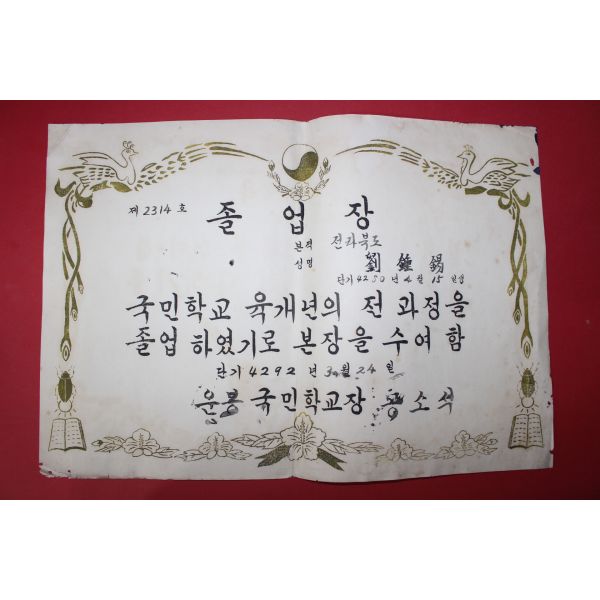 제 2314 호
졸업장
본적 전라북도
성명 劉鍾錫
단기 4280 년 4 월 15 일생
국민학교 육개년의 전 과정을
졸업 하였기로 본장을 수여 함
단기 4292 년 3 월 24 일
운봉 국민학교장 소석